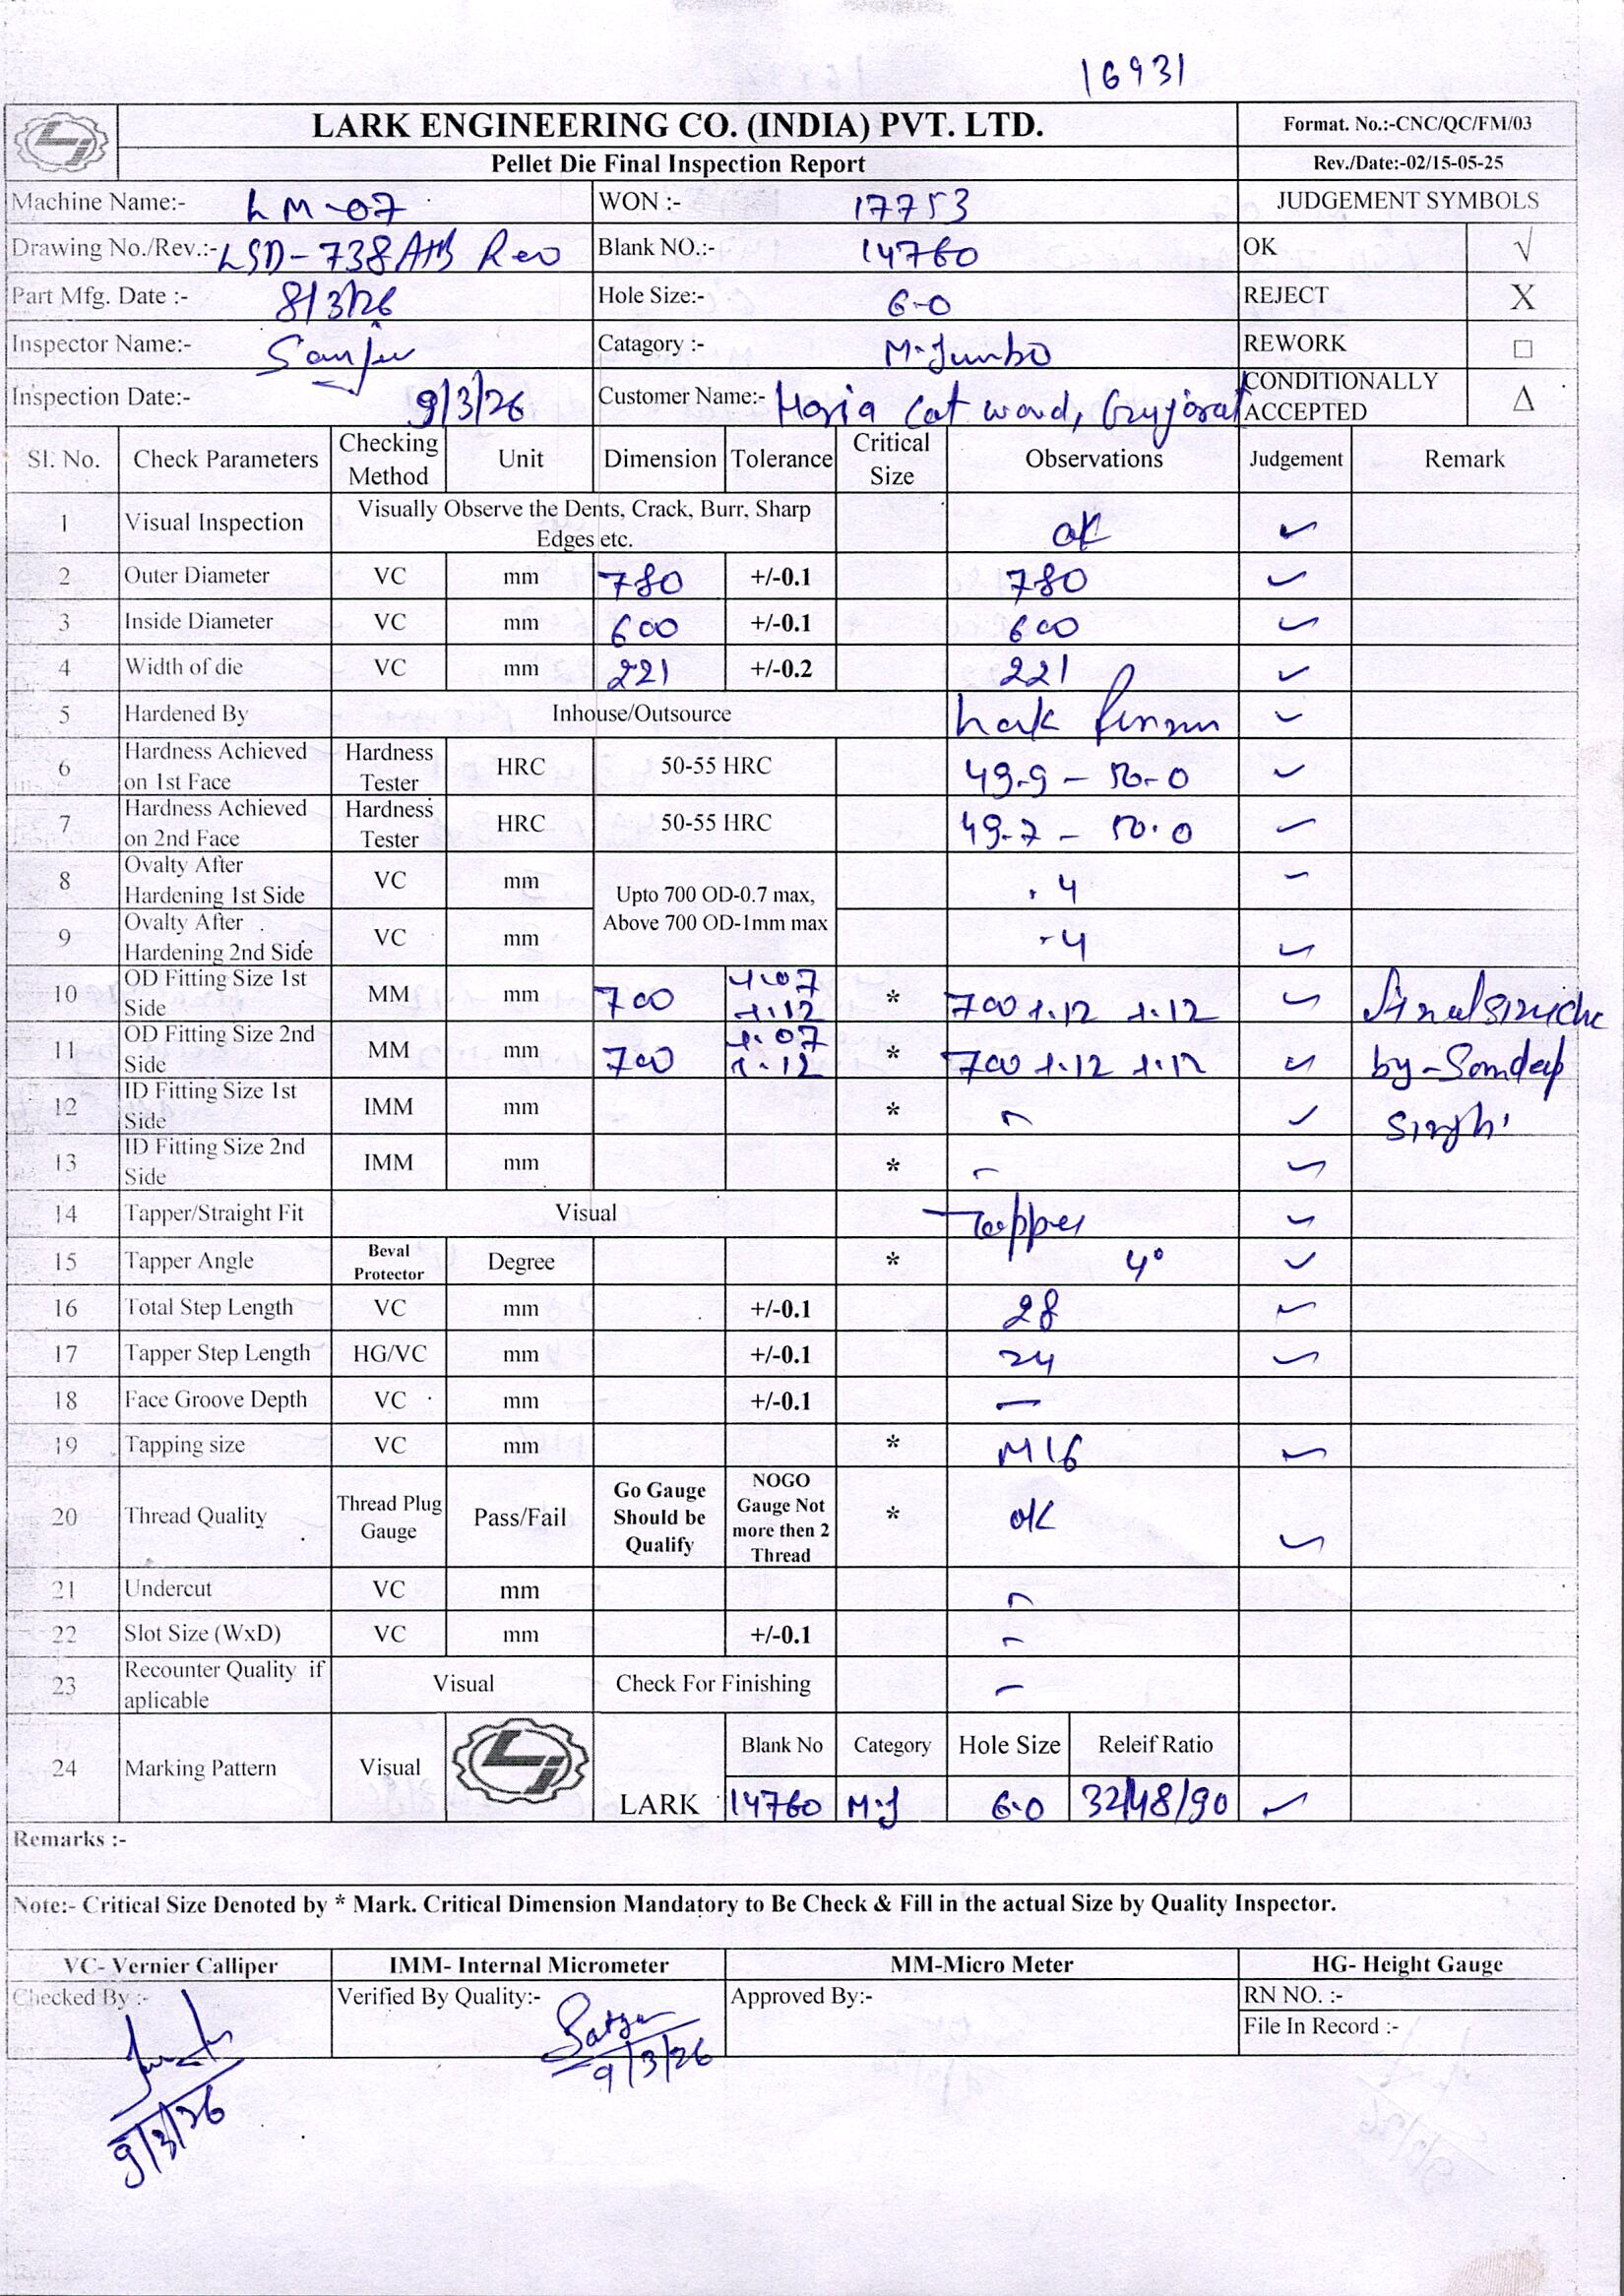 16931
LARK ENGINEERING CO. (INDIA) PVT. LTD.
Format. No.:-CNC/QC/FM/03
Pellet Die Final Inspection Report
Rev./Date:-02/15-05-25
Machine Name:- LM-07 WON :- 17753 JUDGEMENT SYMBOLS
Drawing No./Rev.:- LSD-738 A+B Rev Blank NO.:- 14760 OK √
Part Mfg. Date :- 8/3/26 Hole Size:- 6-0 REJECT X
Inspector Name:- Sanju Catagory :- M.Jumbo REWORK □
Inspection Date:- 9/3/26 Customer Name:- Cat CONDITIONALLY ACCEPTED Δ
Sl. No. Check Parameters Checking Method Unit Dimension Tolerance Critical Size Observations Judgement Remark
1 Visual Inspection Visually Observe the Dents, Crack, Burr, Sharp Edges etc. ok ✓
2 Outer Diameter VC mm 780 +/-0.1 780 ✓
3 Inside Diameter VC mm 600 +/-0.1 600 ✓
4 Width of die VC mm 221 +/-0.2 221 ✓
5 Hardened By Inhouse/Outsource Lark ✓
6 Hardness Achieved on 1st Face Hardness Tester HRC 50-55 HRC 49.9 - 50.0 ✓
7 Hardness Achieved on 2nd Face Hardness Tester HRC 50-55 HRC 49.7 - 50.0 ✓
8 Ovalty After Hardening 1st Side VC mm Upto 700 OD-0.7 max, Above 700 OD-1mm max .4 ✓
9 Ovalty After Hardening 2nd Side VC mm .4 ✓
10 OD Fitting Size 1st Side MM mm 700 +.07 +.12 * 700 +.12 +.12 ✓
11 OD Fitting Size 2nd Side MM mm 700 +.07 +.12 * 700 +.12 +.12 ✓ by - Somdeep
12 ID Fitting Size 1st Side IMM mm * - ✓ Singh
13 ID Fitting Size 2nd Side IMM mm * - ✓
14 Tapper/Straight Fit Visual Tapper ✓
15 Tapper Angle Beval Protector Degree * 4° ✓
16 Total Step Length VC mm +/-0.1 28 ✓
17 Tapper Step Length HG/VC mm +/-0.1 24 ✓
18 Face Groove Depth VC mm +/-0.1 -
19 Tapping size VC mm * M16 ✓
20 Thread Quality Thread Plug Gauge Pass/Fail Go Gauge Should be Qualify NOGO Gauge Not more then 2 Thread * ok ✓
21 Undercut VC mm -
22 Slot Size (WxD) VC mm +/-0.1 -
23 Recounter Quality if aplicable Visual Check For Finishing -
24 Marking Pattern Visual LARK Blank No Category Hole Size Releif Ratio
14760 M.J 6.0 32/48/90 ✓
Remarks :-
Note:- Critical Size Denoted by * Mark. Critical Dimension Mandatory to Be Check & Fill in the actual Size by Quality Inspector.
VC- Vernier Calliper IMM- Internal Micrometer MM-Micro Meter HG- Height Gauge
Checked By :- Verified By Quality:- Approved By:- RN NO. :-
File In Record :-
9/3/26
9/3/26